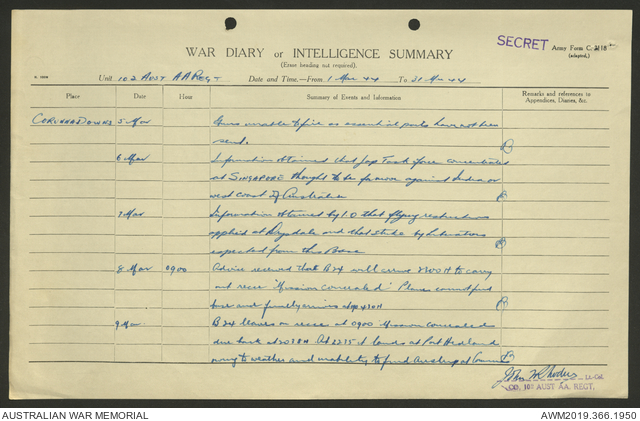 SECRET
Army Form C. 2118
(adapted.)
WAR DIARY or INTELLIGENCE SUMMARY
(Erase heading not required).
Unit 102 AUST AA REGT Date and Time.—From 1 Mar 44 To 31 Mar 44
Place Date Hour Summary of Events and Information Remarks and references to Appendices, Diaries, &c.
CORUNNA DOWNS 5 Mar Guns unable to fire as essential parts have not been
send.
6 Mar Information obtained that Jap Task force concentrated
at SINGAPORE thought to be for use against India or
west coast of Australia
7 Mar Information obtained by I.O that flying restrictions
applied at Drysdale and that strike by Liberators
expected from this Base
8 Mar 0900 Advice received that B24 will arrive H to carry
out recce 'Mission concealed'. Plane cannot find
base and finally arrives at H
9 Mar B24 leaves on recce at 0900 'Mission concealed'
due back at 2018H At 2215 it lands at Port Hedland
owing to weather and unable to find airstrip at Corunna
John W Rhoden Lt-Col
CO. 102 AUST AA. REGT.
AUSTRALIAN WAR MEMORIAL
AWM2019.366.1950